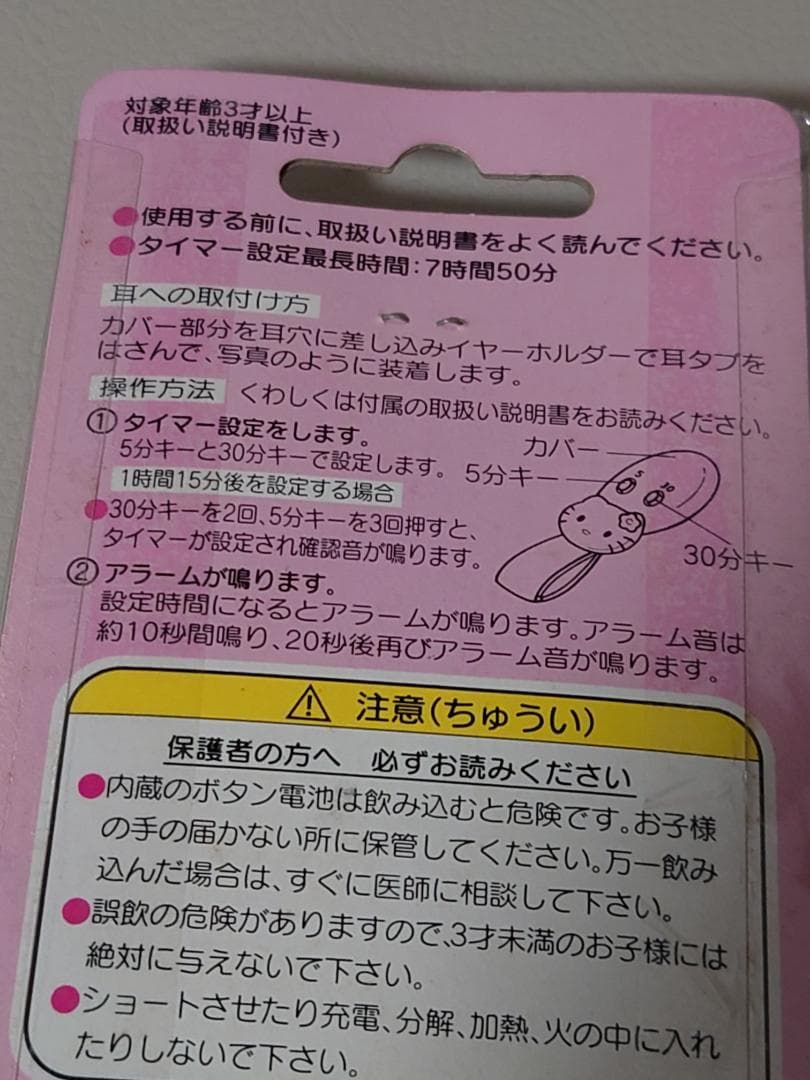 対象年齢3才以上
(取扱い説明書付き)
●使用する前に、取扱い説明書をよく読んでください。
●タイマー設定最長時間：7時間50分
耳への取付け方
カバー部分を耳穴に差し込みイヤーホルダーで耳タブを
はさんで、写真のように装着します。
操作方法 くわしくは付属の取扱い説明書をお読みください。
①タイマー設定をします。
5分キーと30分キーで設定します。
1時間15分後を設定する場合
●30分キーを2回、5分キーを3回押すと、
タイマーが設定され確認音が鳴ります。
カバー
5分キー
5 30
30分キー
②アラームが鳴ります。
設定時間になるとアラームが鳴ります。アラーム音は
約10秒間鳴り、20秒後再びアラーム音が鳴ります。
注意(ちゅうい)
保護者の方へ 必ずお読みください
●内蔵のボタン電池は飲み込むと危険です。お子様
の手の届かない所に保管してください。万一飲み
込んだ場合は、すぐに医師に相談して下さい。
●誤飲の危険がありますので、3才未満のお子様には
絶対に与えないで下さい。
●ショートさせたり充電、分解、加熱、火の中に入れ
たりしないで下さい。